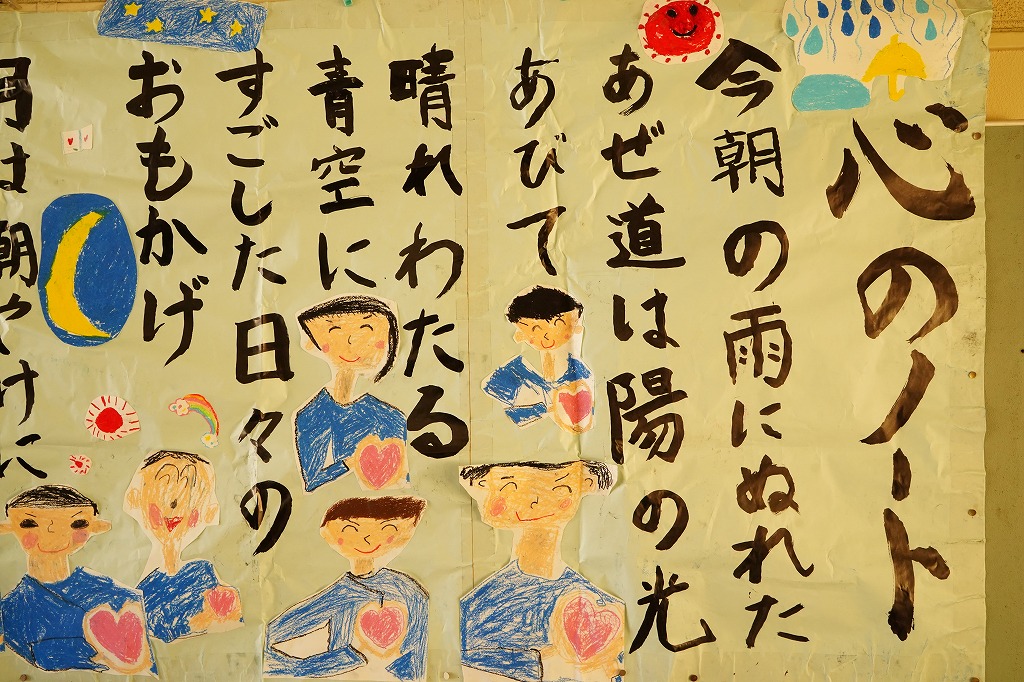 心のノート
今朝の雨にぬれた
あぜ道は陽の光
あびて
晴れわたる
青空に
すごした日々の
おもかげ
月は朝やけに